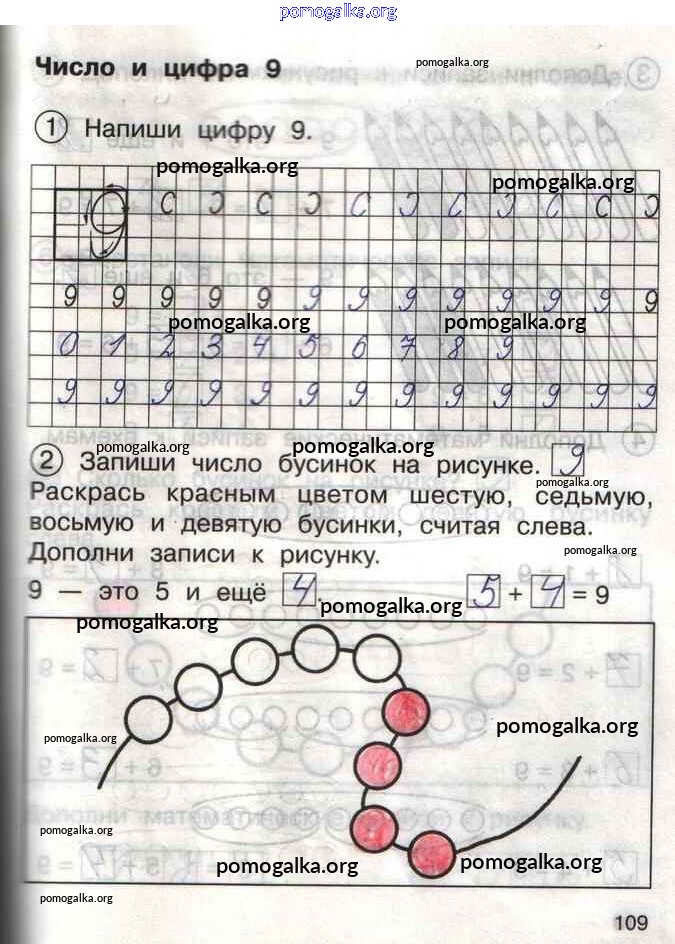 pomogalka.org
Число и цифра 9
pomogalka.org
1 Напиши цифру 9.
pomogalka.org
pomogalka.org
9 9 9 9 9 9 9 9 9 9 9 9 9
pomogalka.org pomogalka.org
0 1 2 3 4 5 6 7 8 9
9 9 9 9 9 9 9 9 9 9 9 9 9
pomogalka.org pomogalka.org
2 Запиши число бусинок на рисунке. 9
pomogalka.org
Раскрась красным цветом шестую, седьмую,
восьмую и девятую бусинки, считая слева.
Дополни записи к рисунку.
pomogalka.org
9 — это 5 и ещё 4. 5 + 4 = 9
pomogalka.org
pomogalka.org
pomogalka.org
pomogalka.org
pomogalka.org
pomogalka.org pomogalka.org
pomogalka.org
109